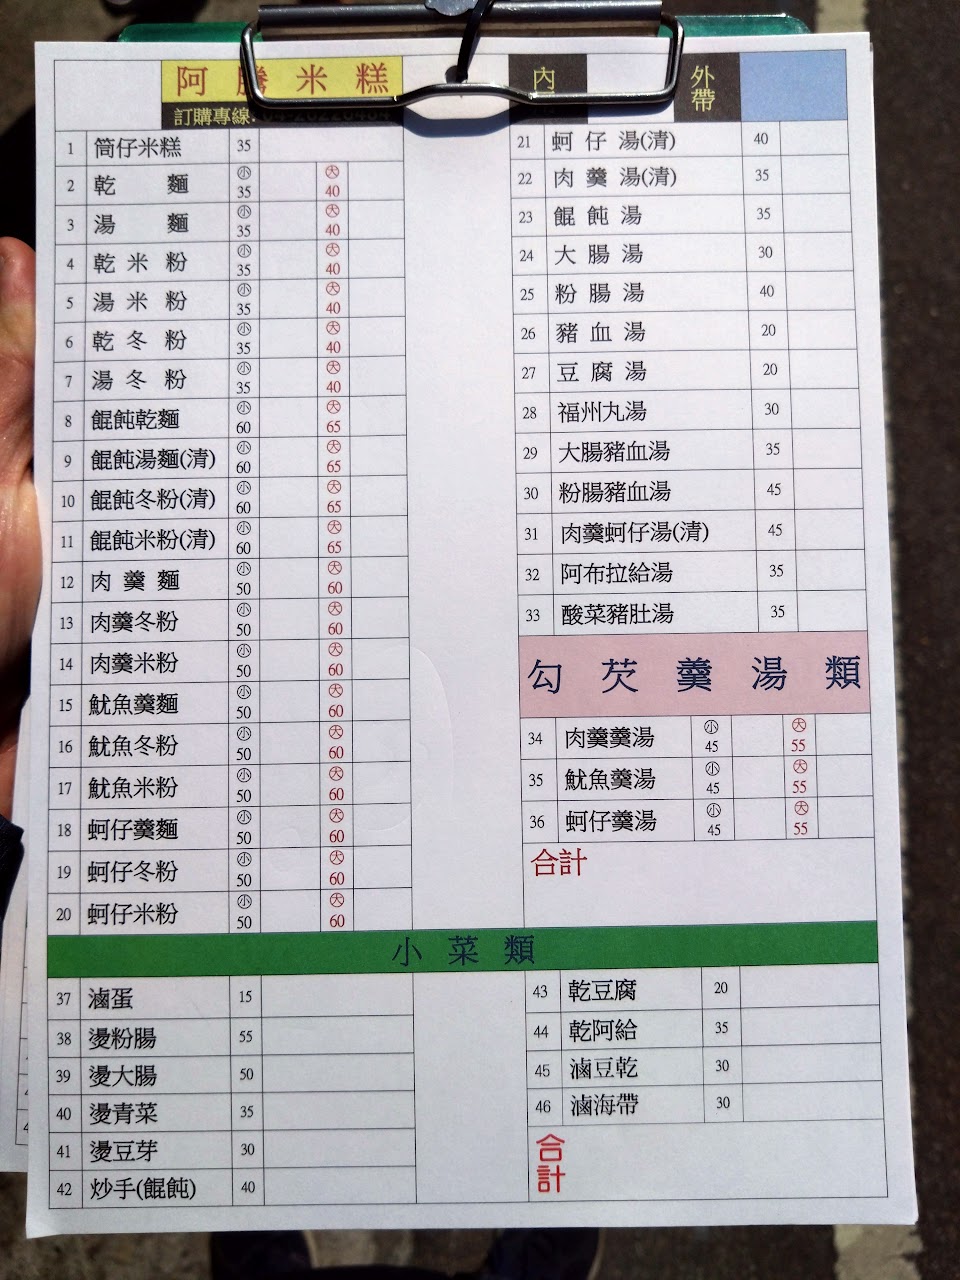 阿騰米糕
內
外帶
訂購專線:
1 筒仔米糕 35
2 乾麵 小 35 大 40
3 湯麵 小 35 大 40
4 乾米粉 小 35 大 40
5 湯米粉 小 35 大 40
6 乾冬粉 小 35 大 40
7 湯冬粉 小 35 大 40
8 餛飩乾麵 小 60 大 65
9 餛飩湯麵(清) 小 60 大 65
10 餛飩冬粉(清) 小 60 大 65
11 餛飩米粉(清) 小 60 大 65
12 肉羹麵 小 50 大 60
13 肉羹冬粉 小 50 大 60
14 肉羹米粉 小 50 大 60
15 魷魚羹麵 小 50 大 60
16 魷魚冬粉 小 50 大 60
17 魷魚米粉 小 50 大 60
18 蚵仔羹麵 小 50 大 60
19 蚵仔冬粉 小 50 大 60
20 蚵仔米粉 小 50 大 60
21 蚵仔湯(清) 40
22 肉羹湯(清) 35
23 餛飩湯 35
24 大腸湯 30
25 粉腸湯 40
26 豬血湯 20
27 豆腐湯 20
28 福州丸湯 30
29 大腸豬血湯 35
30 粉腸豬血湯 45
31 肉羹蚵仔湯(清) 45
32 阿布拉給湯 35
33 酸菜豬肚湯 35
勾芡羹湯類
34 肉羹羹湯 小 45 大 55
35 魷魚羹湯 小 45 大 55
36 蚵仔羹湯 小 45 大 55
合計
小菜類
37 滷蛋 15
38 燙粉腸 55
39 燙大腸 50
40 燙青菜 35
41 燙豆芽 30
42 炒手(餛飩) 40
43 乾豆腐 20
44 乾阿給 35
45 滷豆乾 30
46 滷海帶 30
合計